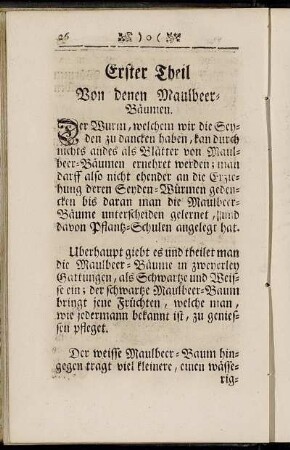 26 ) o (
Erster Theil
Von denen Maulbeer-
Bäumen.
Der Wurm, welchem wir die Sey-
den zu dancken haben, kan durch
nichts andes als Blätter von Maul-
beer-Bäumen ernehret werden; man
darff also nicht ehender an die Erzie-
hung deren Seyden-Würmen geden-
cken bis daran man die Maulbeer-
Bäume unterscheiden gelernet, und
davon Pflantz-Schulen angelegt hat.
Uberhaupt giebt es und theilet man
die Maulbeer-Bäume in zweyerley
Gattungen, als Schwartze und Weis-
se ein; der schwartze Maulbeer-Baum
bringt jene Früchten, welche man,
wie jedermann bekannt ist, zu genies-
sen pfleget.
Der weisse Maulbeer-Baum hin-
gegen tragt viel kleinere, einen wässe-
rig-